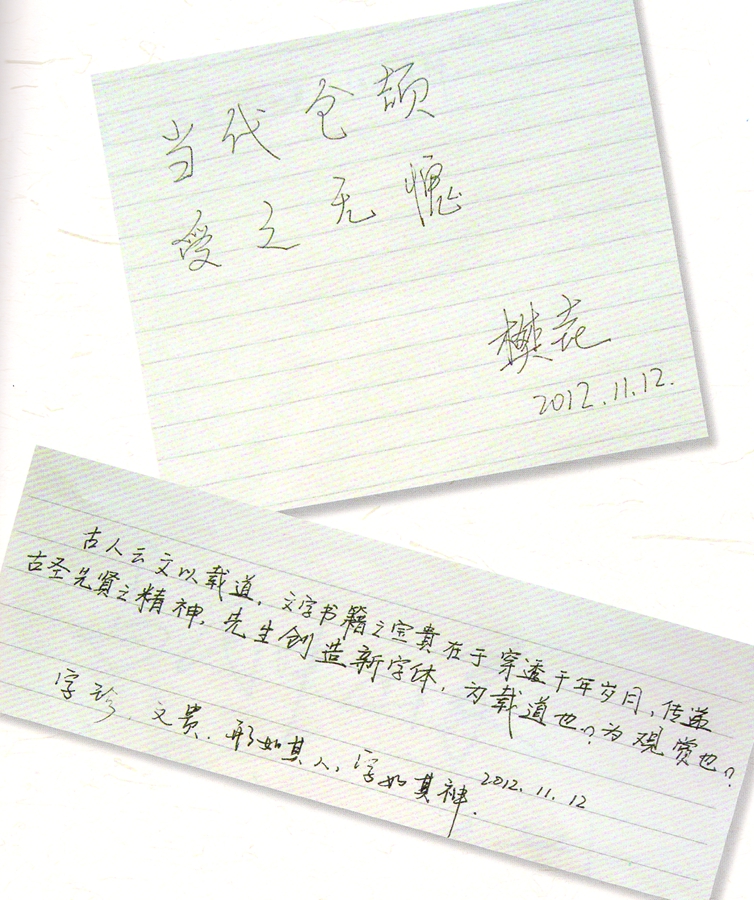 当代仓颉
受之无愧
樊花
2012.11.12.
古人云文以载道，文字书籍之宝贵在于穿透千年岁月，传递
古圣先贤之精神，先生创造新字体，为载道也？为观赏也？
字珍，文贵，形如其人，字如其神．
2012.11.12